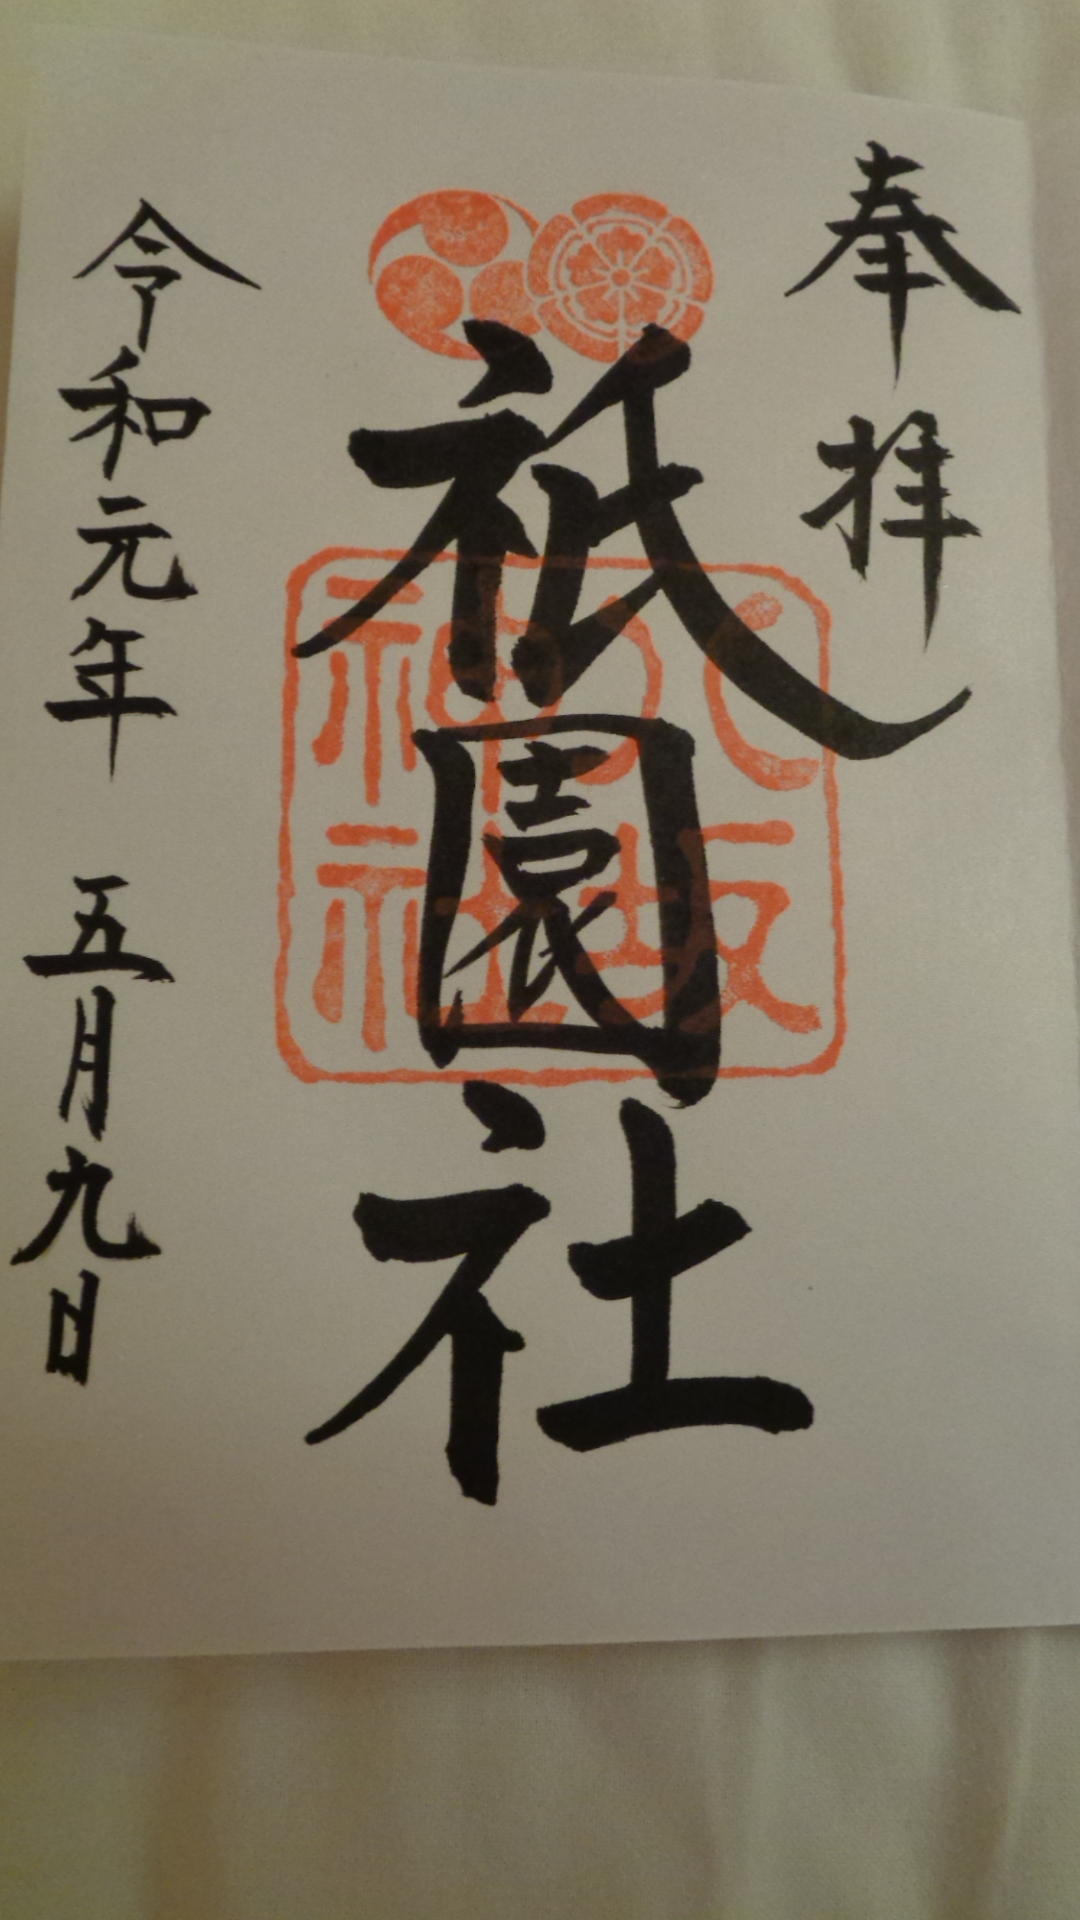 奉拝
祇園社
八坂
神社
令和元年 五月九日